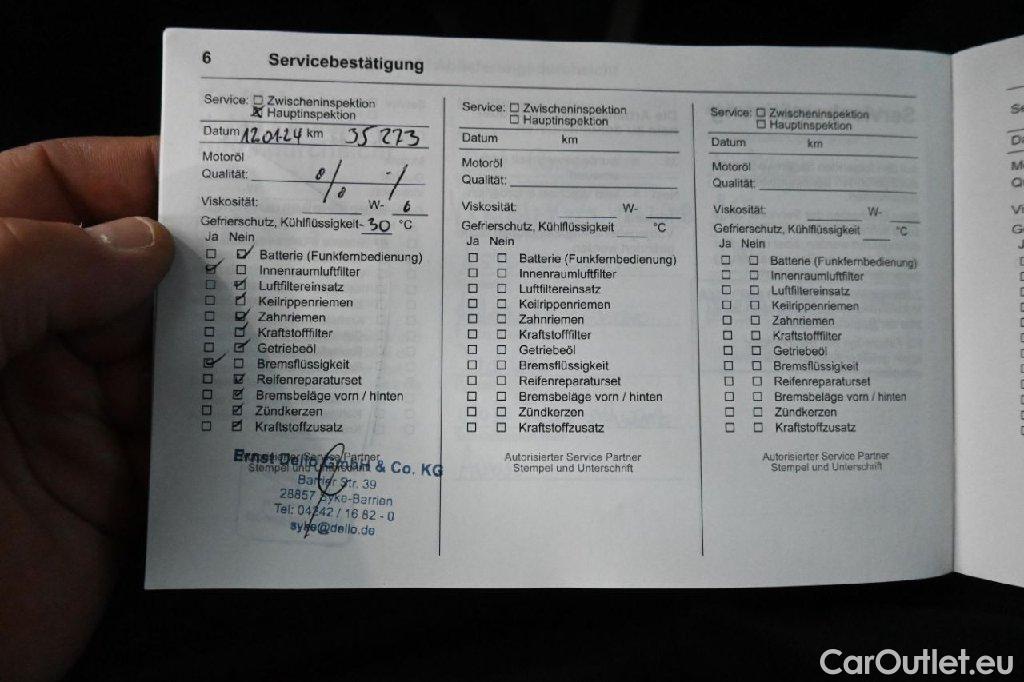 6 Servicebestätigung
Service: Zwischeninspektion
Hauptinspektion
Datum 120124 km 35 273
Motoröl
Qualität:
Viskosität: W-
Gefrierschutz, Kühlflüssigkeit- 30 °C
Ja Nein
Batterie (Funkfernbedienung)
Innenraumluftfilter
Luftfiltereinsatz
Keilrippenriemen
Zahnriemen
Kraftstofffilter
Getriebeöl
Bremsflüssigkeit
Reifenreparaturset
Bremsbeläge vorn / hinten
Zündkerzen
Kraftstoffzusatz
Autorisierter Service Partner
Stempel und Unterschrift
Ernst Dello GmbH & Co. KG
Barrier Str. 39
28857 Syke-Barrien
Tel: 04242 / 16 82 - 0
syke@dello.de
Service: Zwischeninspektion
Hauptinspektion
Datum km
Motoröl
Qualität:
Viskosität: W-
Gefrierschutz, Kühlflüssigkeit °C
Ja Nein
Batterie (Funkfernbedienung)
Innenraumluftfilter
Luftfiltereinsatz
Keilrippenriemen
Zahnriemen
Kraftstofffilter
Getriebeöl
Bremsflüssigkeit
Reifenreparaturset
Bremsbeläge vorn / hinten
Zündkerzen
Kraftstoffzusatz
Autorisierter Service Partner
Stempel und Unterschrift
Service: Zwischeninspektion
Hauptinspektion
Datum km
Motoröl
Qualität:
Viskosität: W-
Gefrierschutz, Kühlflüssigkeit °C
Ja Nein
Batterie (Funkfernbedienung)
Innenraumluftfilter
Luftfiltereinsatz
Keilrippenriemen
Zahnriemen
Kraftstofffilter
Getriebeöl
Bremsflüssigkeit
Reifenreparaturset
Bremsbeläge vorn / hinten
Zündkerzen
Kraftstoffzusatz
Autorisierter Service Partner
Stempel und Unterschrift
CarOutlet.eu